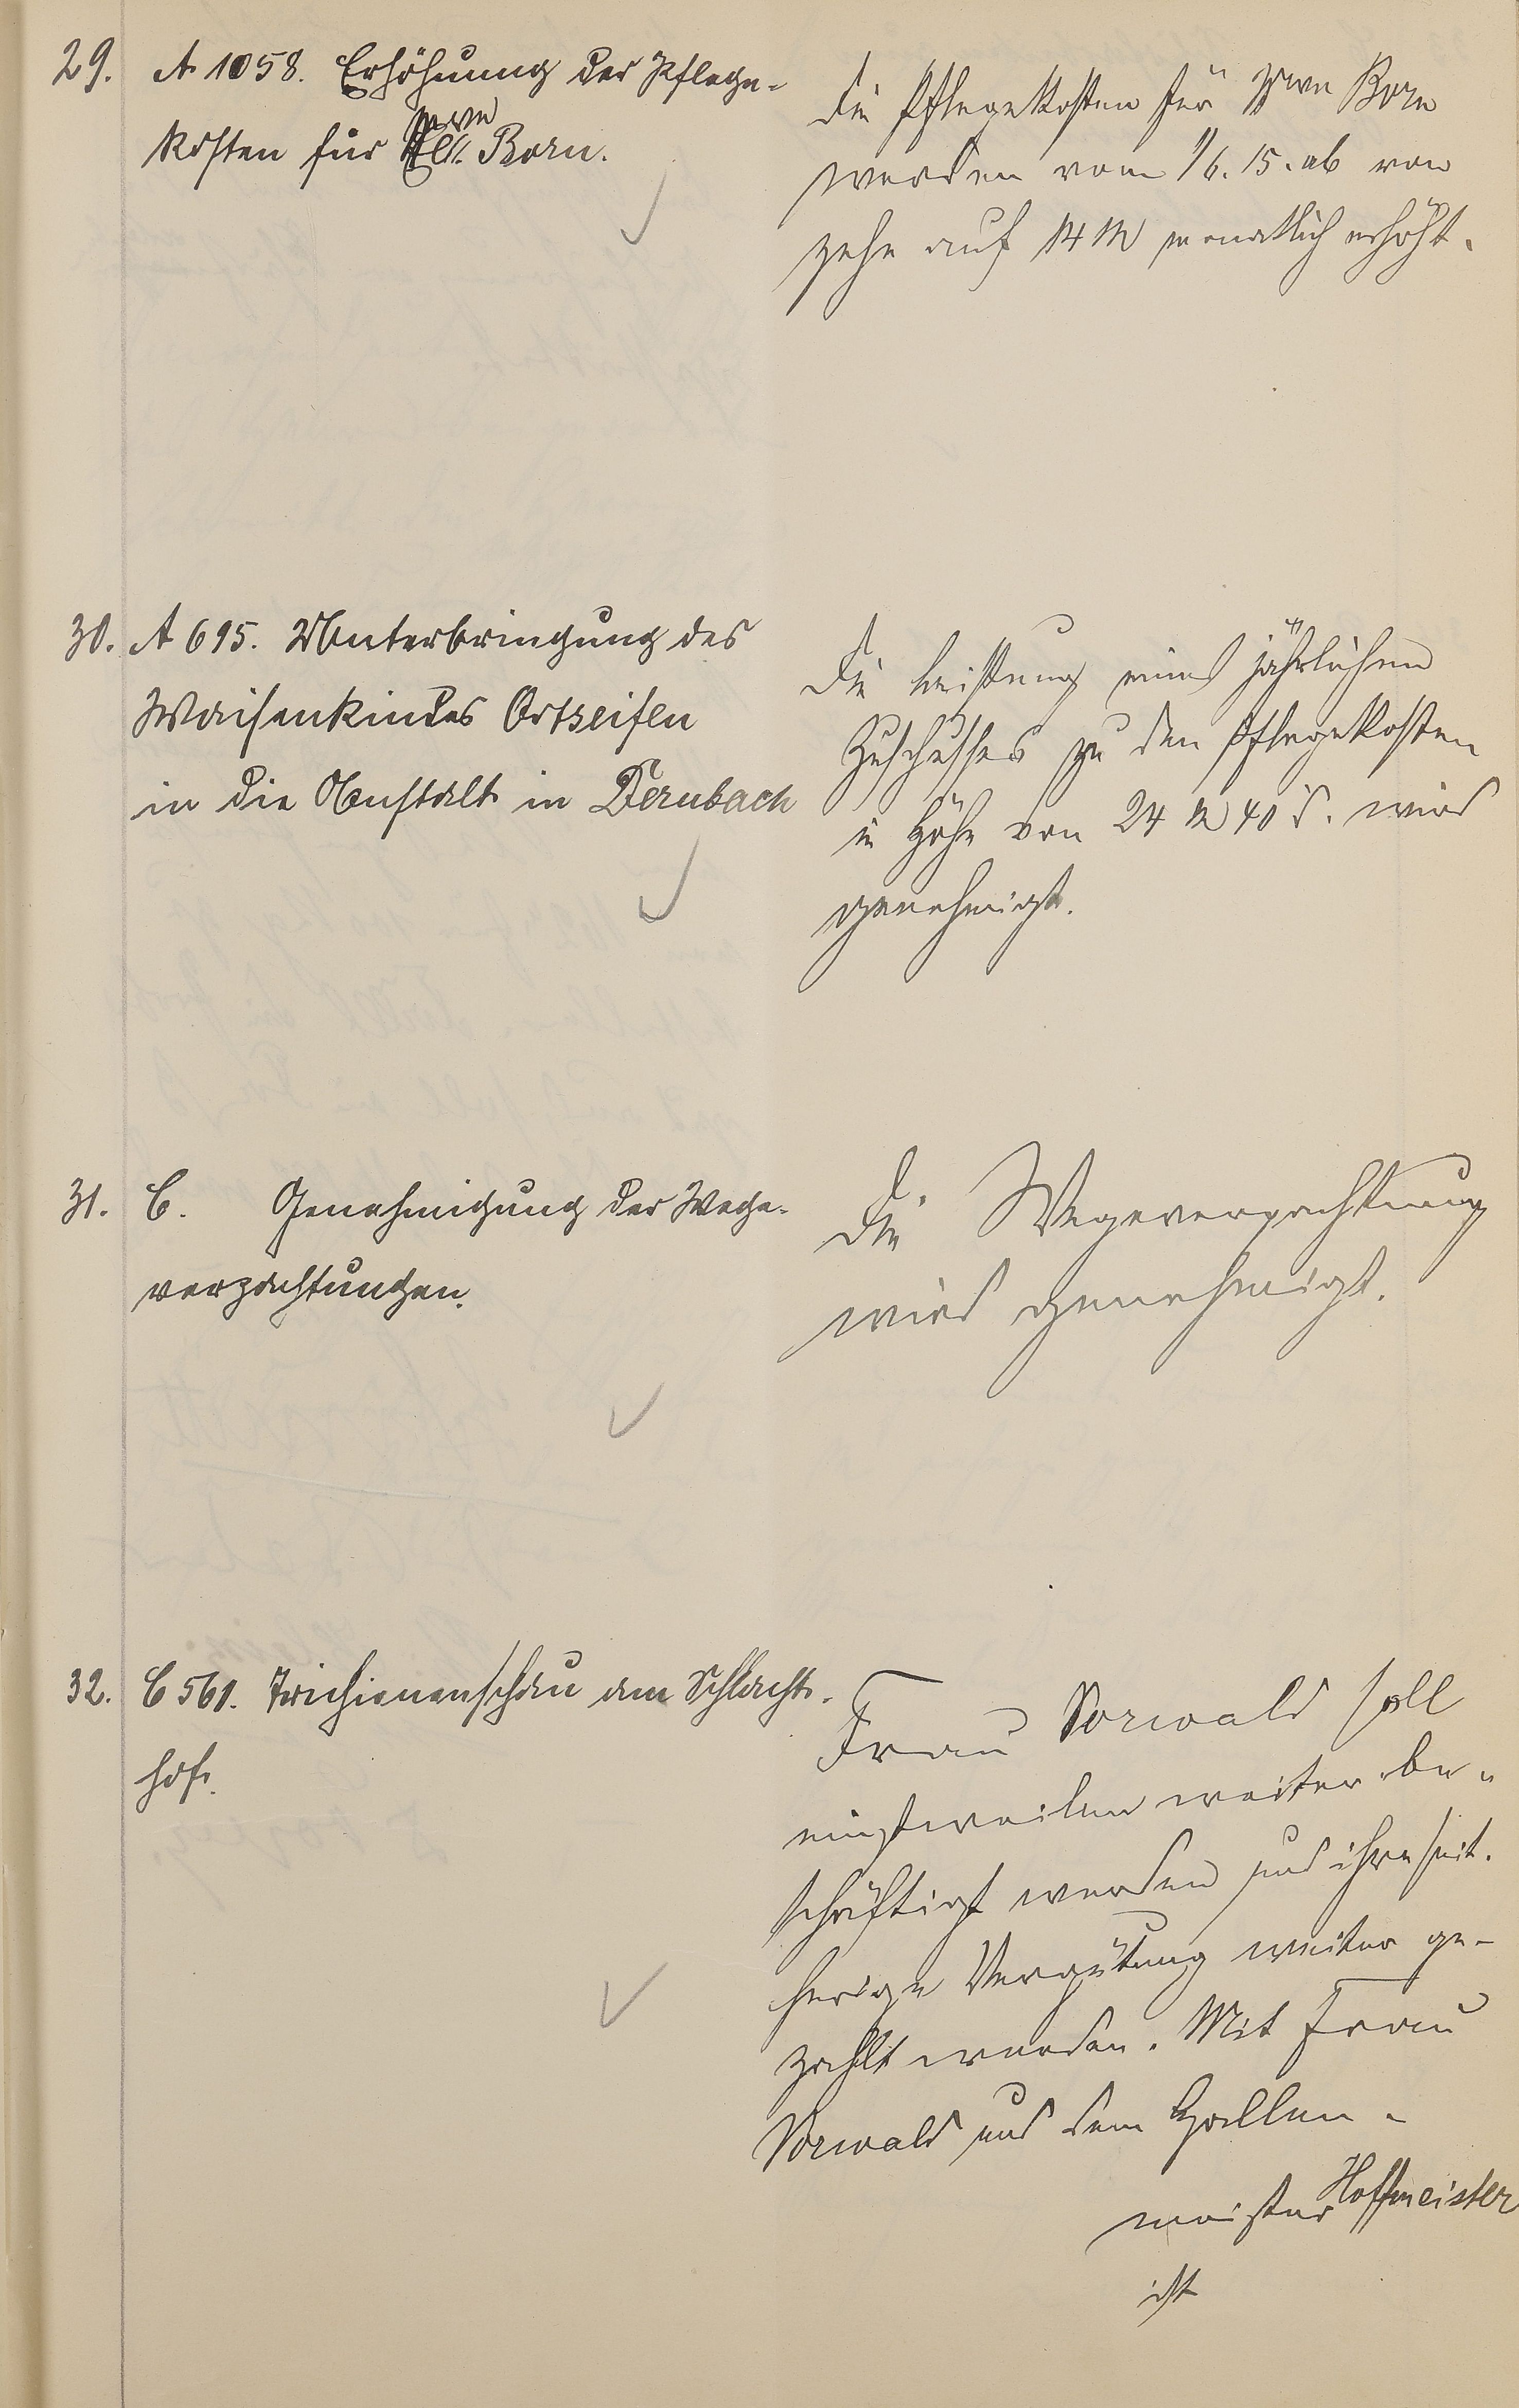 29. A 1058. Erhöhung der Pflege-
kosten für Wwe Born.
Die Pflegekosten für Wwe Born
werden vom 1/6. 15. ab von
zehn auf 14 M monatlich erhöht.
30. A 695. Unterbringung des
Waisenkindes Ortseifen
in die Anstalt in Dernbach
Die Leistung eines jährlichen
Zuschusses zu den Pflegekosten
in Höhe von 24 M 40 d. wird
genehmigt.
31. C. Genehmigung der Wege-
verpachtungen.
Die Wegeverpachtung
wird genehmigt.
32. C 561. Trichienenschau am Schlacht-
hof.
Frau Vorwald soll
einstweilen weiter be-
schäftigt werden und ihre seit-
herige Vergütung weiter ge-
zahlt werden. Mit Frau
Vorwald und dem Hallen-
meister Hoffmeister
ist